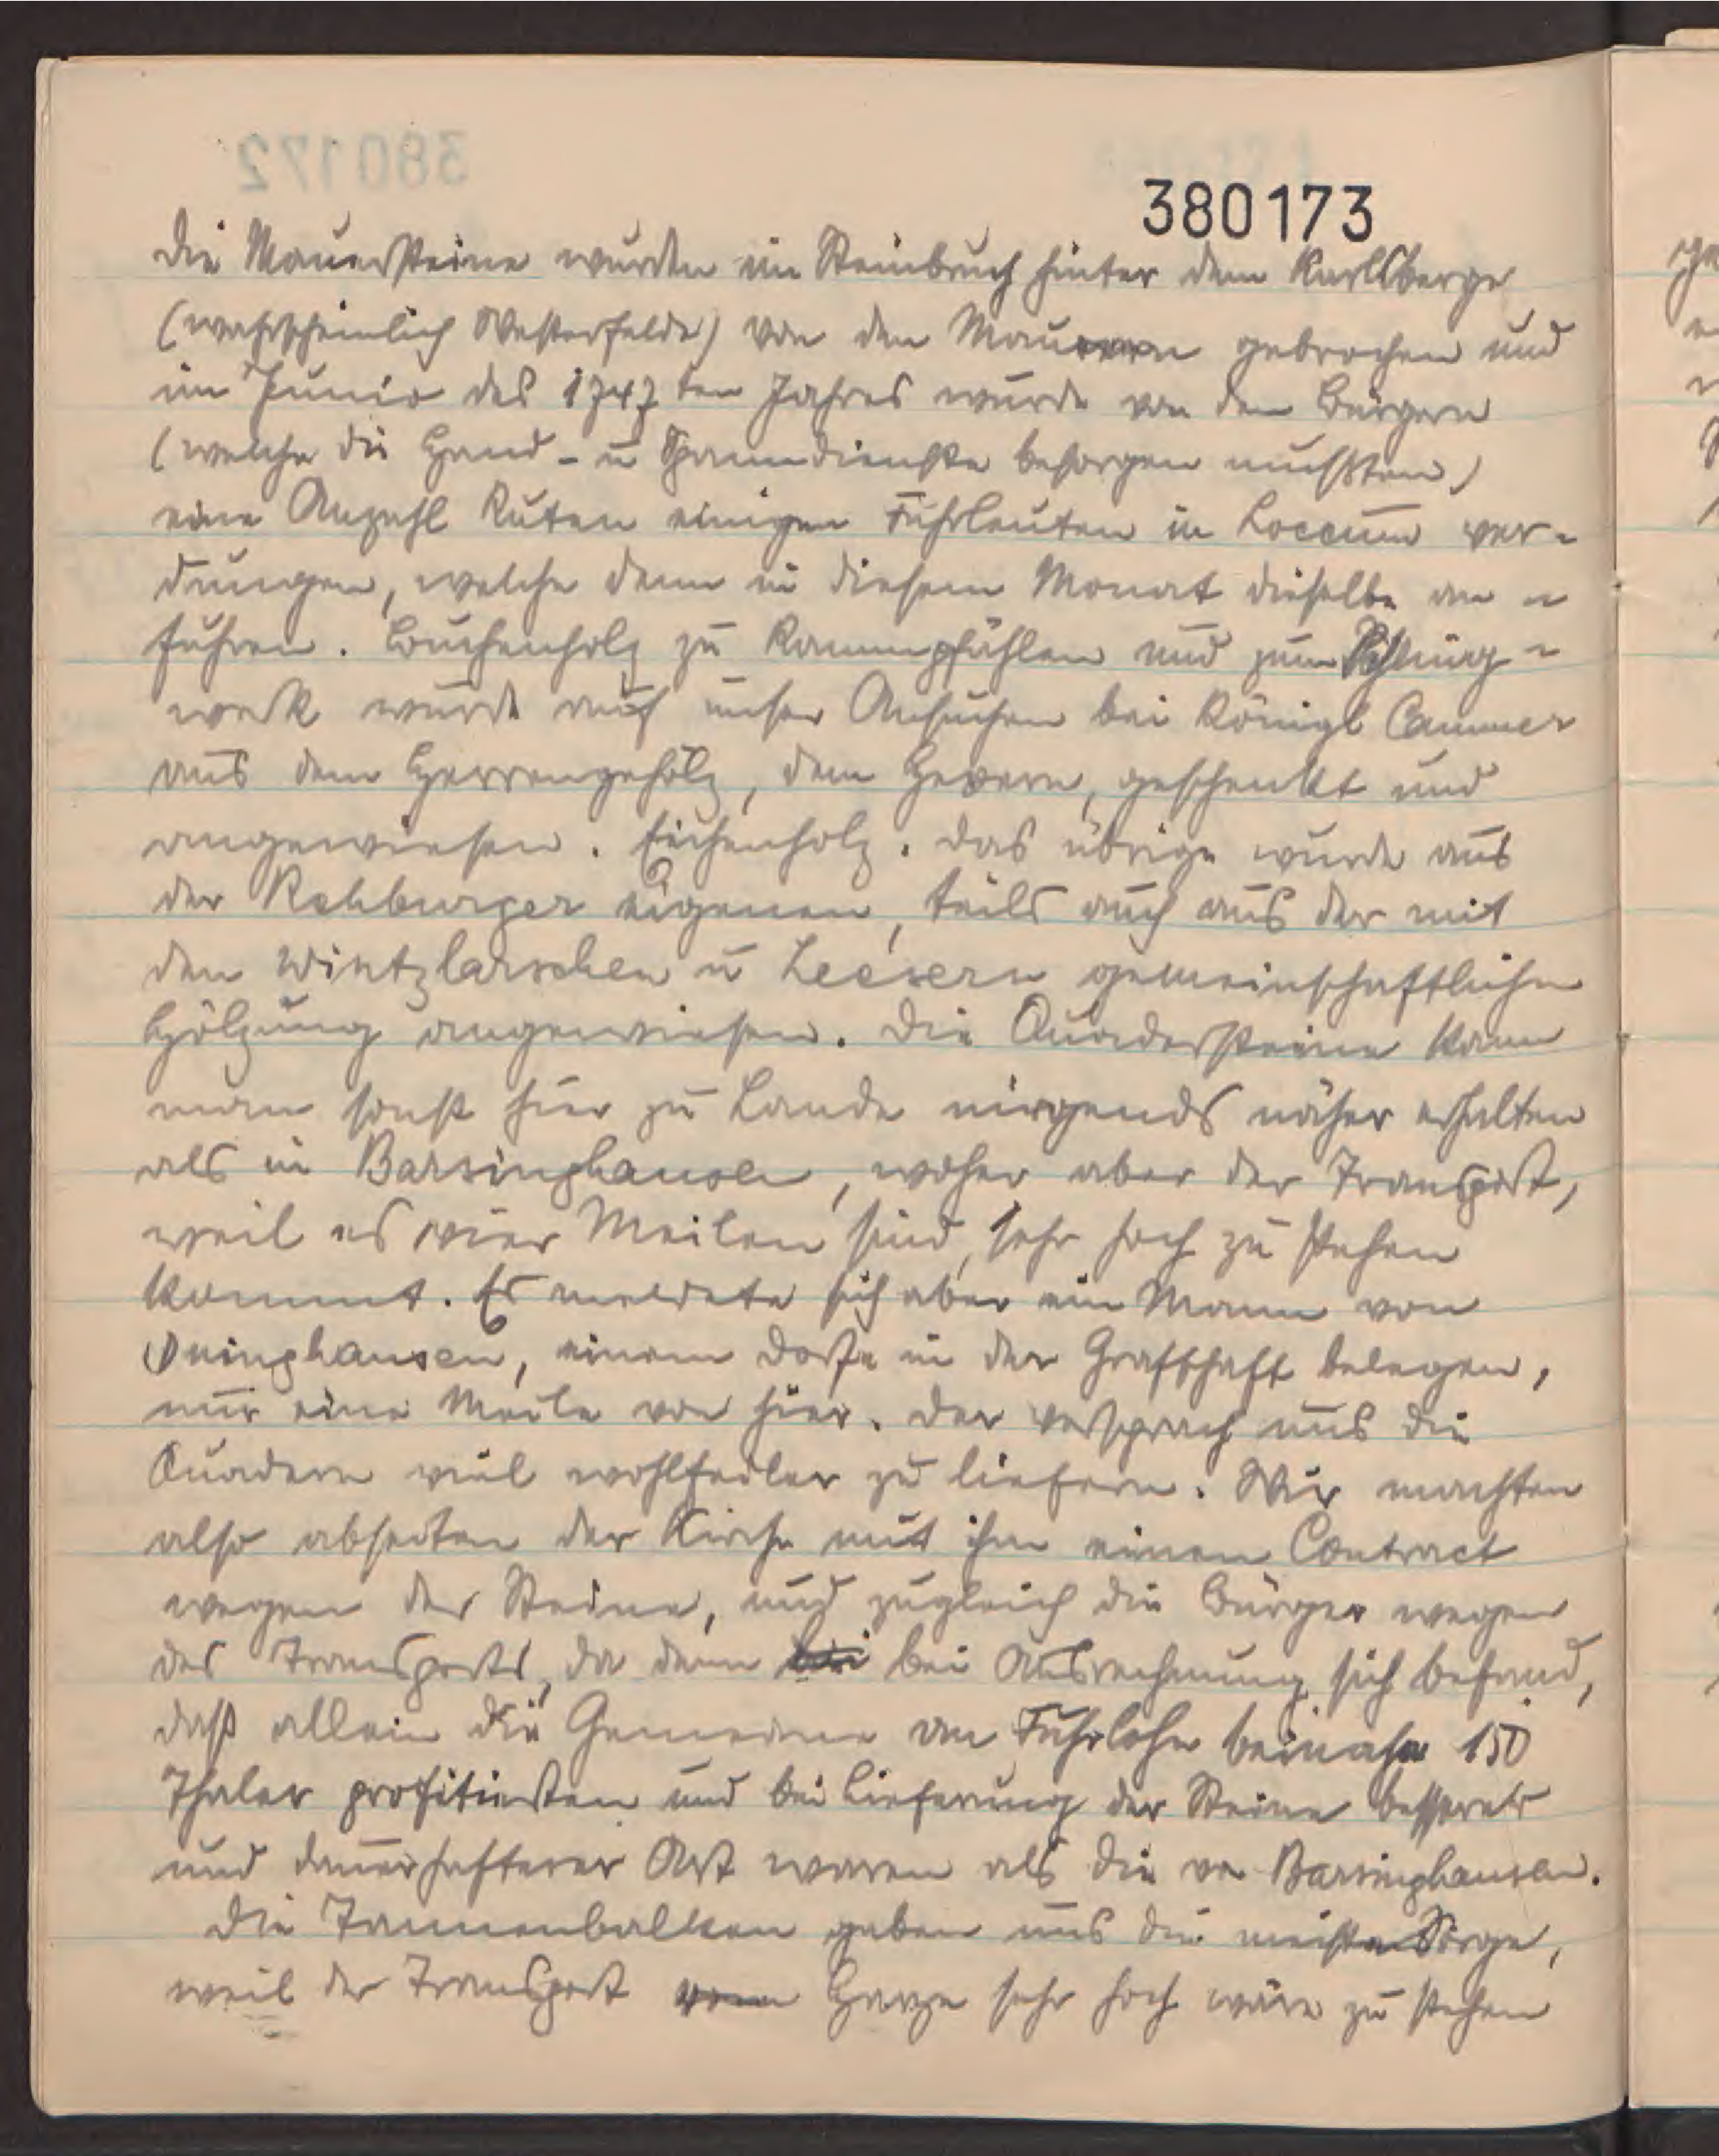 380173
Die Mauersteine wurden im Steinbruch hinter dem Karlsberge
(wahrscheinlich Westerfelde) von den Maurern gebrochen und
im Junio des 1747ten Jahres wurde von den Bürgern
(welche die Hand- u Spanndienste besorgen mussten)
eine Anzahl Ruten einigen Fuhrleuten in Loccum ver-
dungen, welche denn in diesem Monat dieselbe an-
fuhren. Buchenholz zu Rammpfählen und zum Schling-
werk wurde auf unser Ansuchen bei Königl Cammer
aus dem Herrengehölz, dem Hevern, geschenkt und
angewiesen. Eichenholz. das übrige wurde aus
der Rehburger eigenen, teils auch aus der mit
den Wintzlarschen u Leesern gemeinschaftlichen
Hölzung angewiesen. Die Quadersteine kann
man sonst hier zu Lande nirgends näher erhalten
als in Barsinghausen, woher aber der Transport,
weil es vier Meilen sind, sehr hoch zu stehen
kommt. Es meldete sich aber ein Mann von
einem Dorfe in der Grafschaft belegen,
nur eine Meile von hier. Der versprach uns die
Quadern viel wohlfeiler zu liefern. Wir machten
also abseiten der Kirche mit ihm einen Contract
wegen der Steine, und zugleich die Bürger wegen
des Transports, da denn bei bei Ausrechnung sich befand,
daß allein die Gemeinde an Fuhrlohn beinahe 150
Thaler profitierten und bei Lieferung der Steine besserer
und dauerhafterer Art waren als die von Barsinghausen.
Die Tannenbalken gaben uns die meiste Sorge,
weil der Transport vom Harze sehr hoch wäre zu stehen